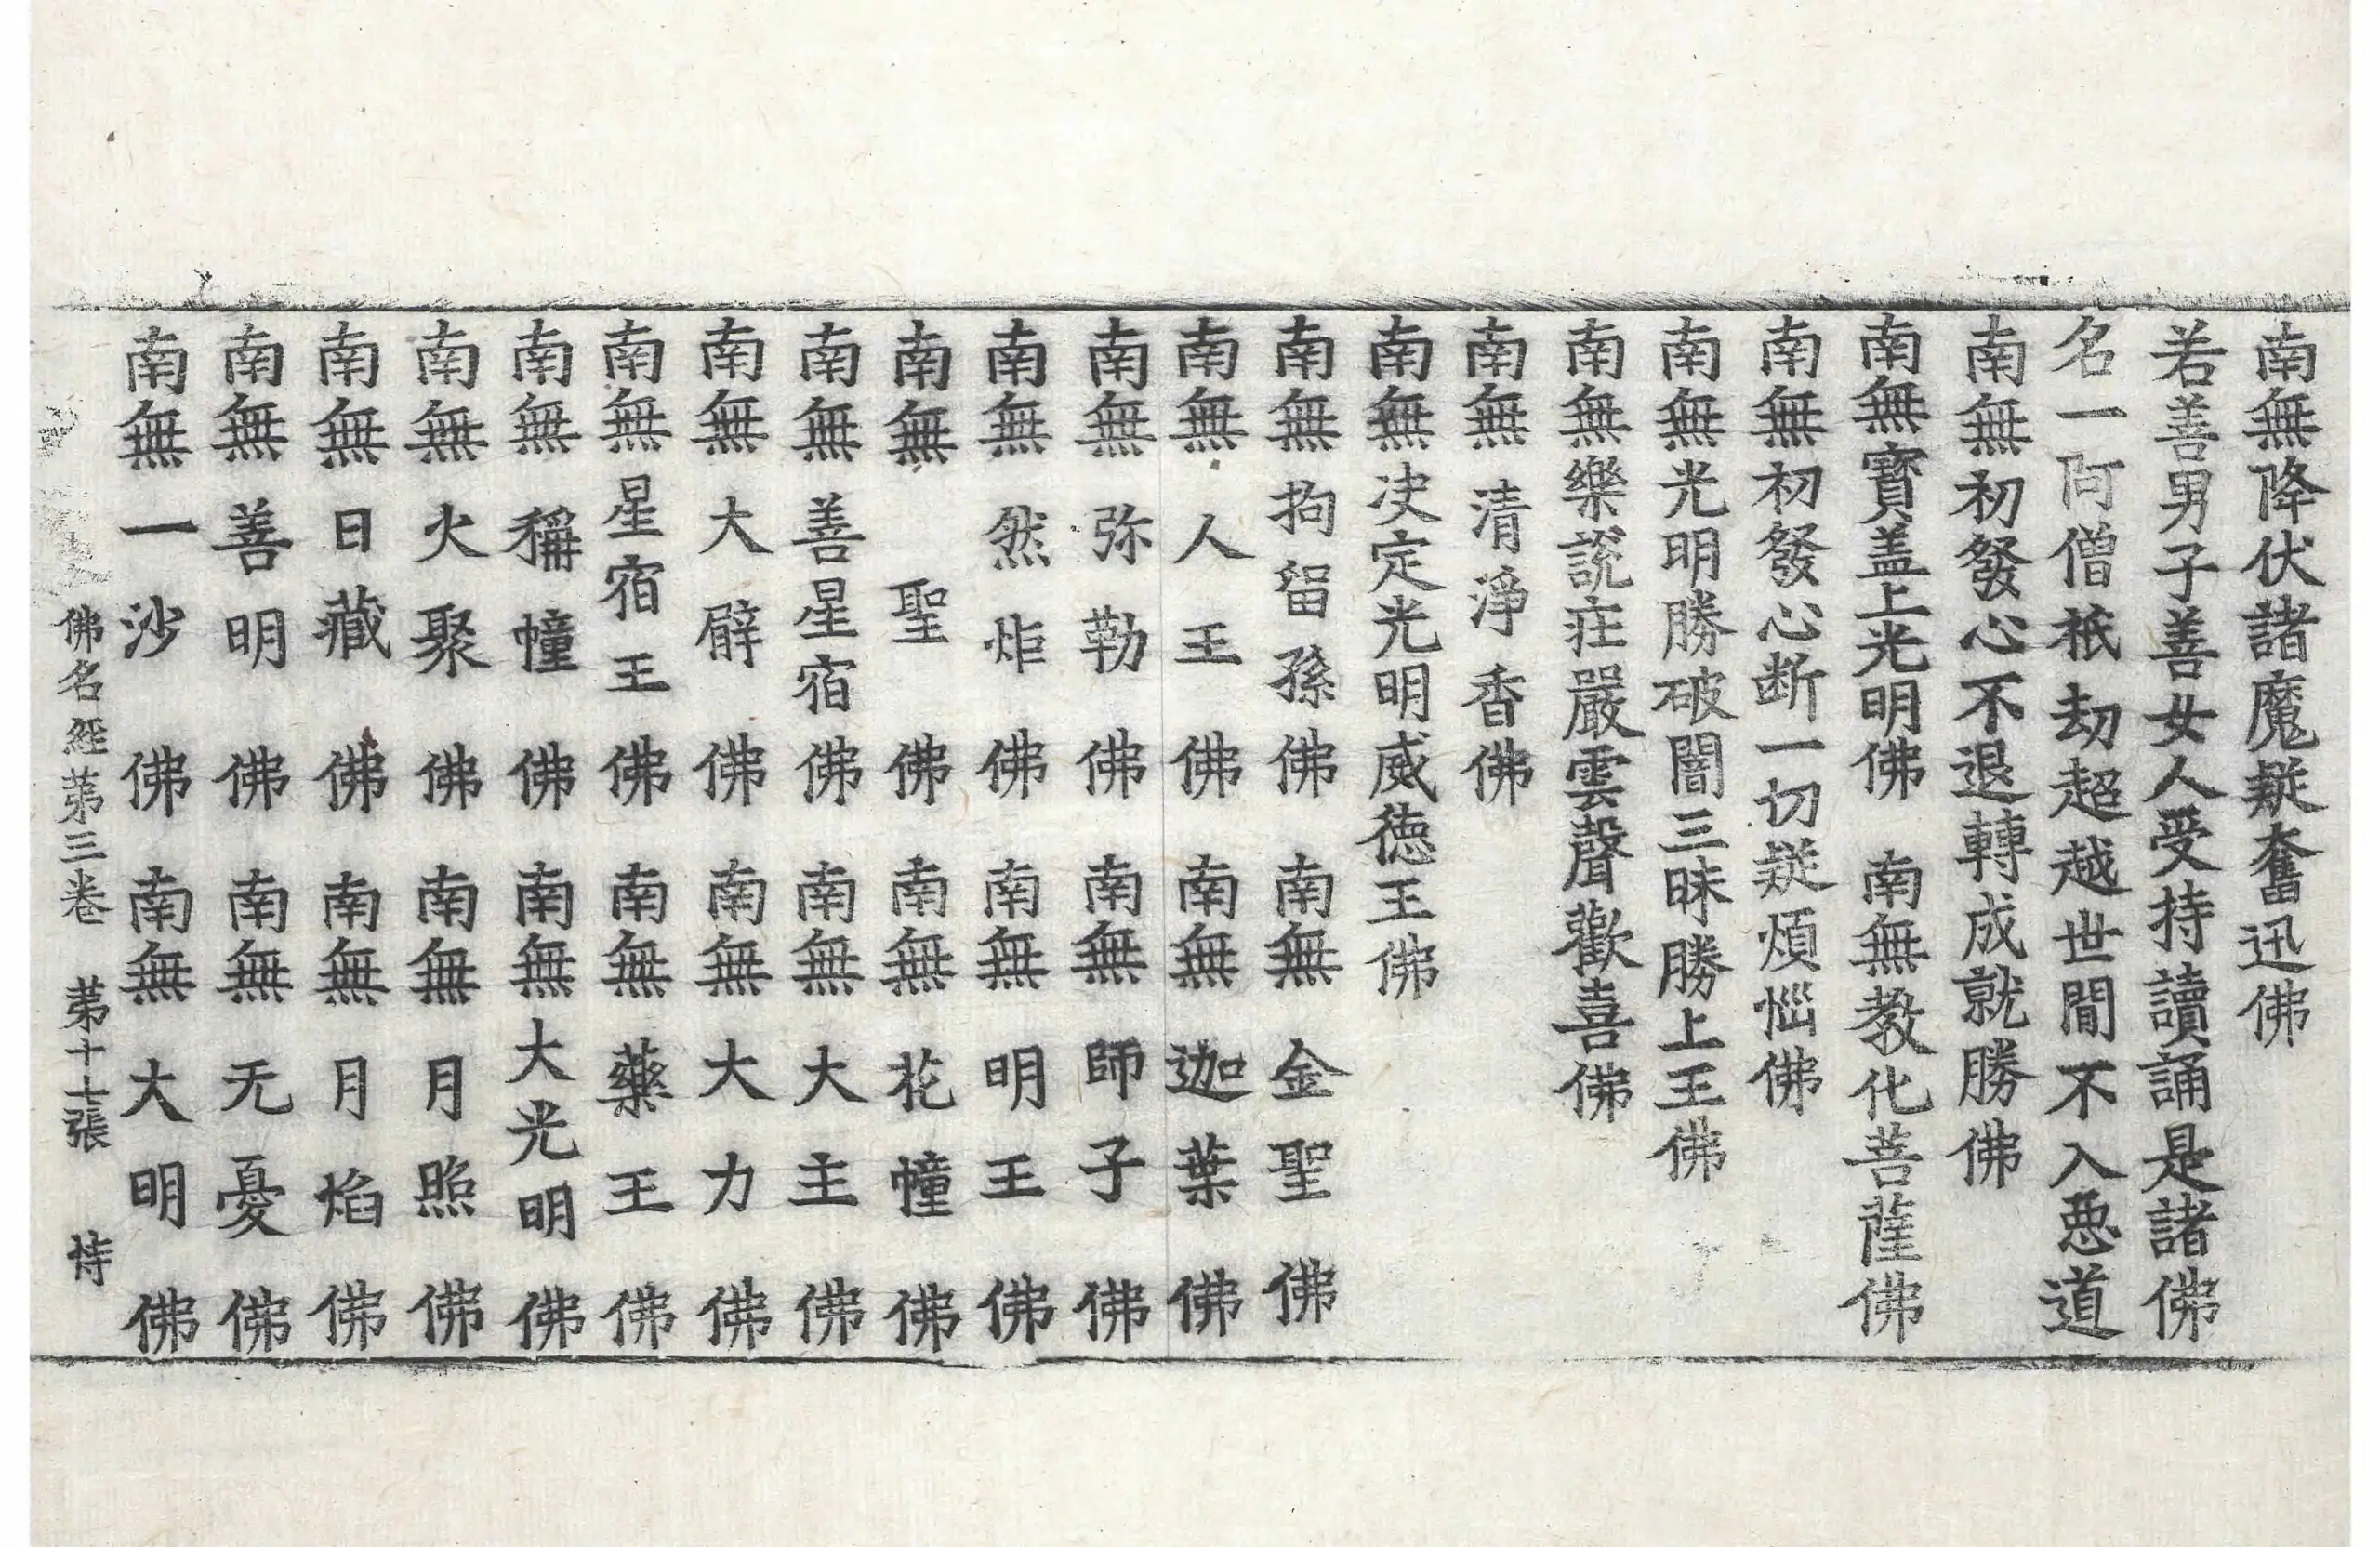 南無降伏諸魔疑奮迅佛
若善男子善女人受持讀誦是諸佛
名一阿僧祇劫超越世間不入惡道
南無初發心不退轉成就勝佛
南無寶盖上光明佛　南無教化菩薩佛
南無初發心断一切疑煩惱佛
南無光明勝破闇三昧勝上王佛
南無樂說莊嚴雲聲歡喜佛
南無清淨香佛
南無决定光明威德王佛
南無拘留孫佛　南無金聖佛
南無人王佛　南無迦葉佛
南無弥勒佛　南無師子佛
南無然炬佛　南無明王佛
南無聖佛　南無花幢佛
南無善星宿佛　南無大主佛
南無大臂佛　南無大力佛
南無星宿王佛　南無藥王佛
南無稱幢佛　南無大光明佛
南無火聚佛　南無月照佛
南無日藏佛　南無月焰佛
南無善明佛　南無无憂佛
南無一沙佛　南無大明佛
佛名經第三卷　第十七張　恃